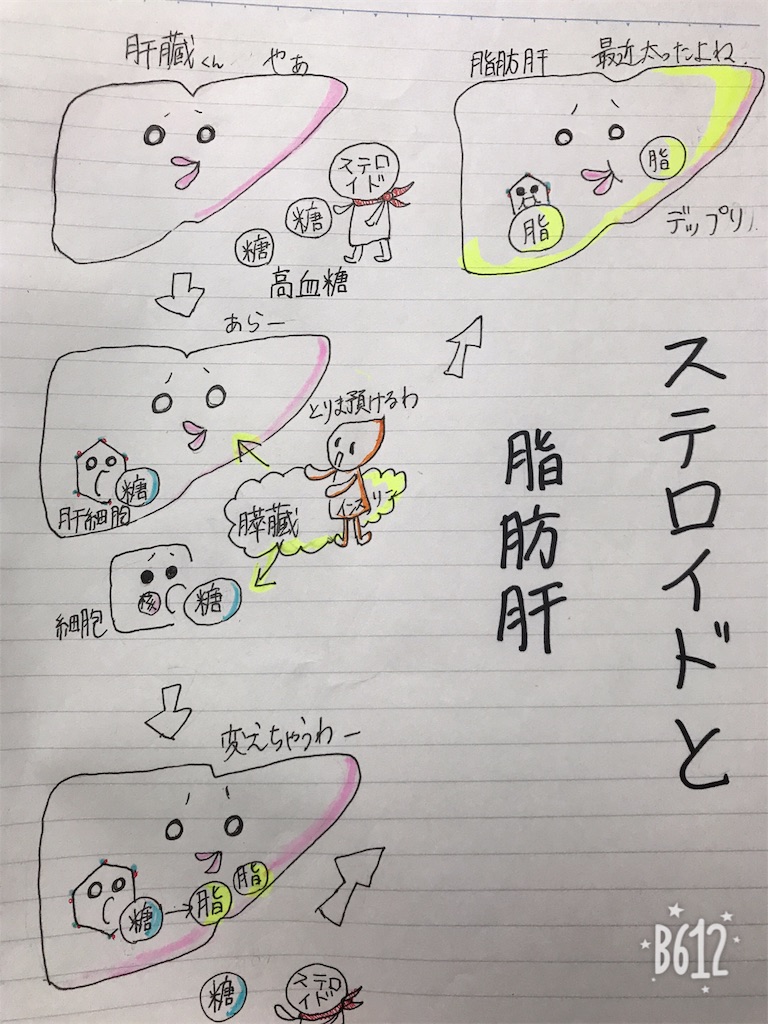 ステロイドと
脂肪肝
肝臓くん
やあ
ステロ
イド
糖
糖
高血糖
あらー
とりま預けるわ
糖
肝細胞
膵臓
インスリン
核
糖
細胞
変えちゃうわー
糖
脂
脂
糖
ステロ
イド
脂肪肝
最近太ったよね.
脂
脂
デップリ
B612